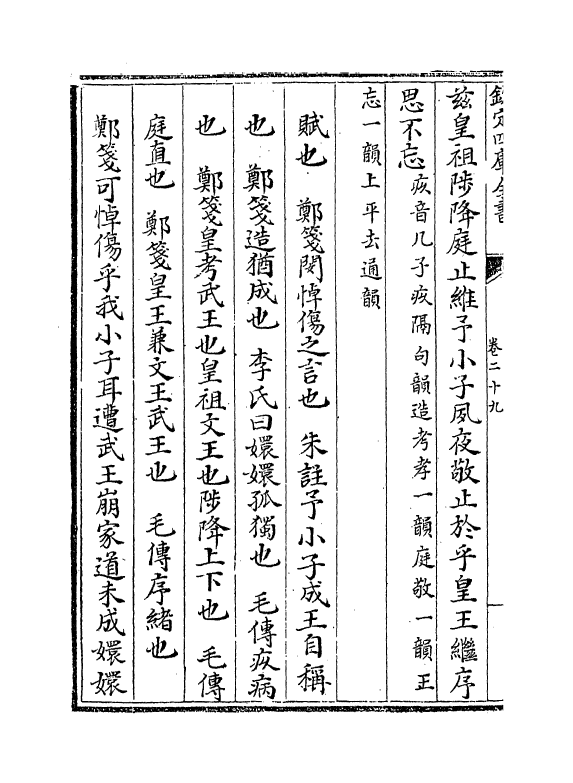 欽定四庫全書
卷二十九
茲皇祖陟降庭止維予小子夙夜敬止於乎皇王繼序
思不忘疚音几子疚隔句韻造考孝一韻庭敬一韻王
忘一韻上平去通韻
賦也　鄭箋閔悼傷之言也　朱註予小子成王自稱
也　鄭箋造猶成也　李氏曰嬛嬛孤獨也　毛傳疚病
也　鄭箋皇考武王也皇祖文王也陟降上下也　毛傳
庭直也　鄭箋皇王兼文王武王也　毛傳序緒也
鄭箋可悼傷乎我小子耳遭武王崩家道未成嬛嬛